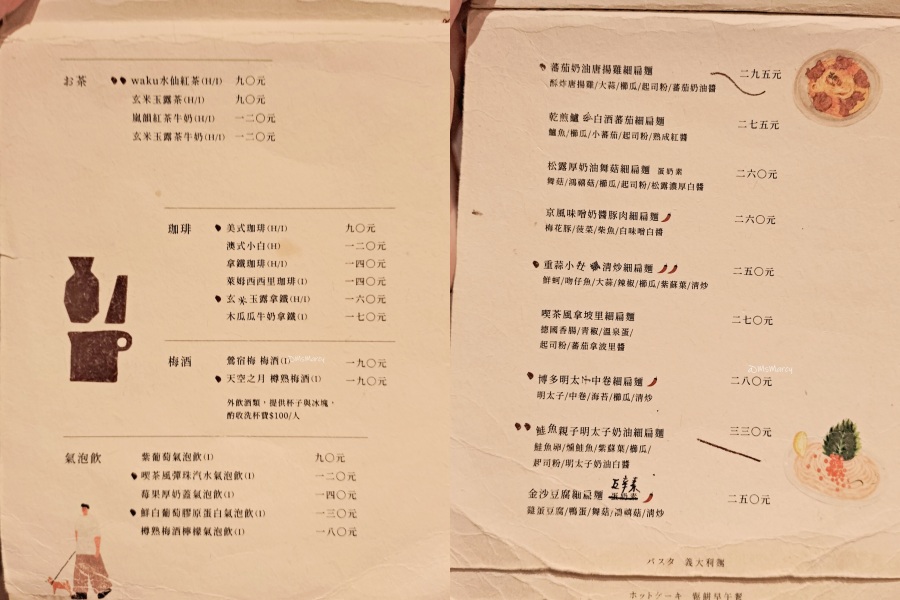 お茶
waku水仙紅茶(H/I) 九〇元
玄米玉露茶(H/I) 九〇元
嵐韻紅茶牛奶(H/I) 一二〇元
玄米玉露茶牛奶(H/I) 一二〇元
珈琲
美式珈琲(H/I) 九〇元
澳式小白(H) 一二〇元
拿鐵珈琲(H/I) 一四〇元
萊姆西西里珈琲(I) 一四〇元
玄米玉露拿鐵(H/I) 一六〇元
木瓜瓜牛奶拿鐵(I) 一七〇元
梅酒
鶯宿梅 梅酒(I) 一九〇元
天空之月 樽熟梅酒(I) 一九〇元
外飲酒類，提供杯子與冰塊，
酌收洗杯費$100/人
氣泡飲
紫葡萄氣泡飲(I) 九〇元
喫茶風彈珠汽水氣泡飲(I) 一二〇元
莓果厚奶蓋氣泡飲(I) 一四〇元
鮮白葡萄膠原蛋白氣泡飲(I) 一三〇元
樽熟梅酒檸檬氣泡飲(I) 一八〇元
@MsMurmy
蕃茄奶油唐揚雞細扁麵 二九五元
酥炸唐揚雞/大蒜/櫛瓜/起司粉/蕃茄奶油醬
乾煎鱸 白酒蕃茄細扁麵 二七五元
鱸魚/櫛瓜/小蕃茄/起司粉/熟成紅醬
松露厚奶油舞菇細扁麵 蛋奶素 二六〇元
舞菇/鴻禧菇/櫛瓜/起司粉/松露濃厚白醬
京風味噌奶醬豚肉細扁麵 二六〇元
梅花豚/菠菜/柴魚/白味噌白醬
重蒜小 清炒細扁麵 二五〇元
鮮蚵/吻仔魚/大蒜/辣椒/櫛瓜/紫蘇葉/清炒
喫茶風拿坡里細扁麵 二七〇元
德國香腸/青椒/溫泉蛋/
起司粉/蕃茄拿波里醬
博多明太子中卷細扁麵 二八〇元
明太子/中卷/海苔/櫛瓜/清炒
鮭魚親子明太子奶油細扁麵 三三〇元
鮭魚卵/燻鮭魚/紫蘇葉/櫛瓜/
起司粉/明太子奶油白醬
五辛素
金沙豆腐細扁麵 蛋奶素 二五〇元
雞蛋豆腐/鴨蛋/舞菇/鴻禧菇/清炒
パスタ 義大利麵
ホットケーキ 鬆餅早午餐